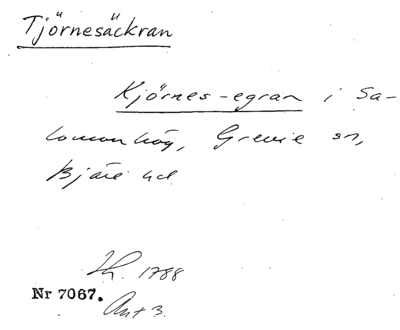 Tjörnesäckran
Kjörnes-egran i Sa-
lomonhög, Grevie sn,
Bjäre hd
1788
Nr 7067.
Ant 3.